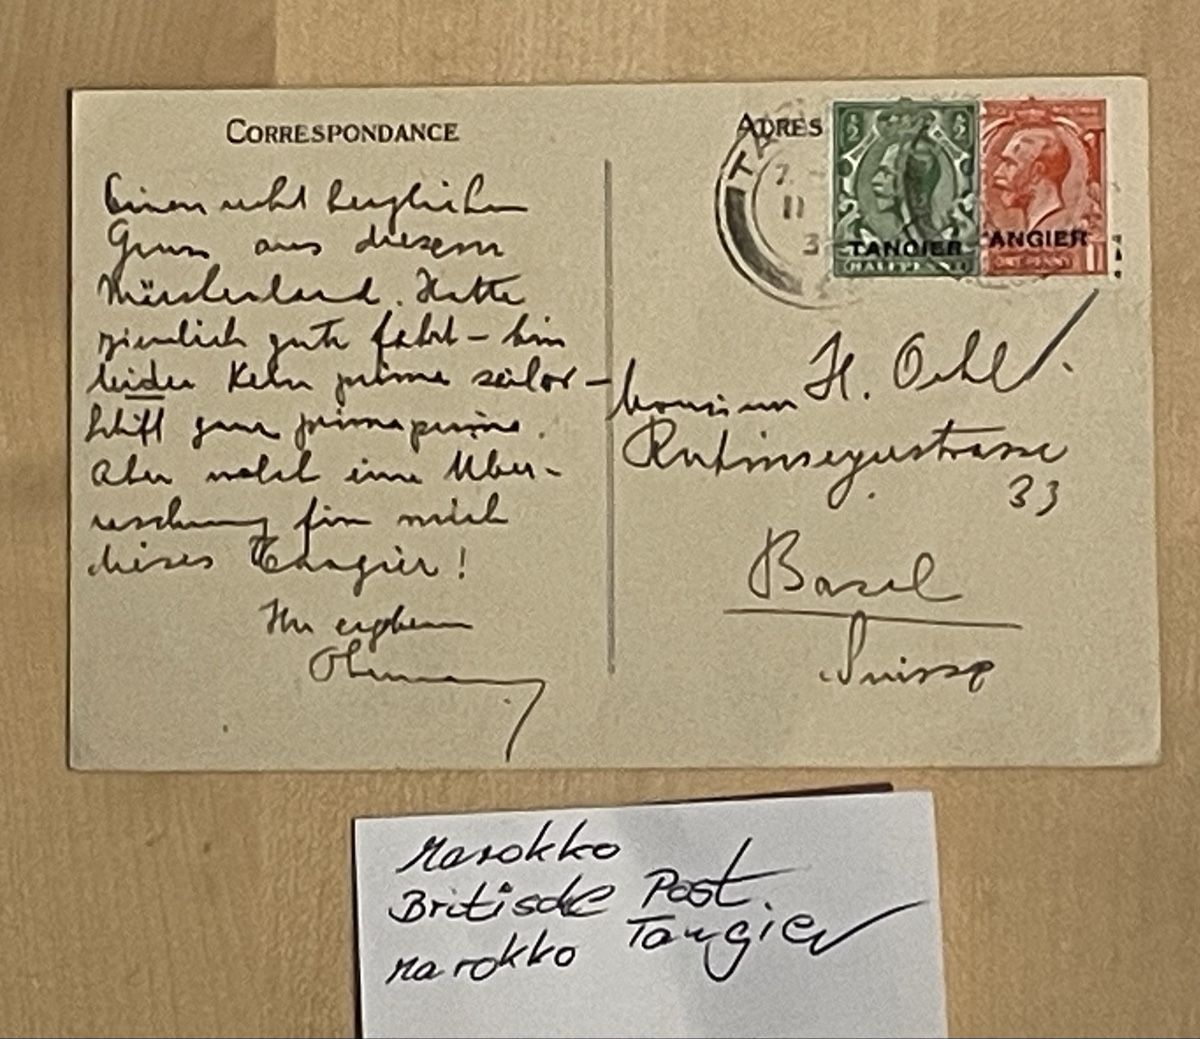 CORRESPONDANCE
ADRES
TANGIER
HALFPENNY
ANGIER
ONE PENNY
Einen recht herzlichen
Gruss aus diesem
Märchenland. Hatte
ziemlich gute Fahrt – bin
leider kein prima
Schiff ganz prima prima.
Aber wohl eine Über-
raschung für mich
dieses Tangier!
Ihr ergebener
Monsieur H.
33
Basel
Suisse
Marokko
Britische Post.
Marokko Tangier